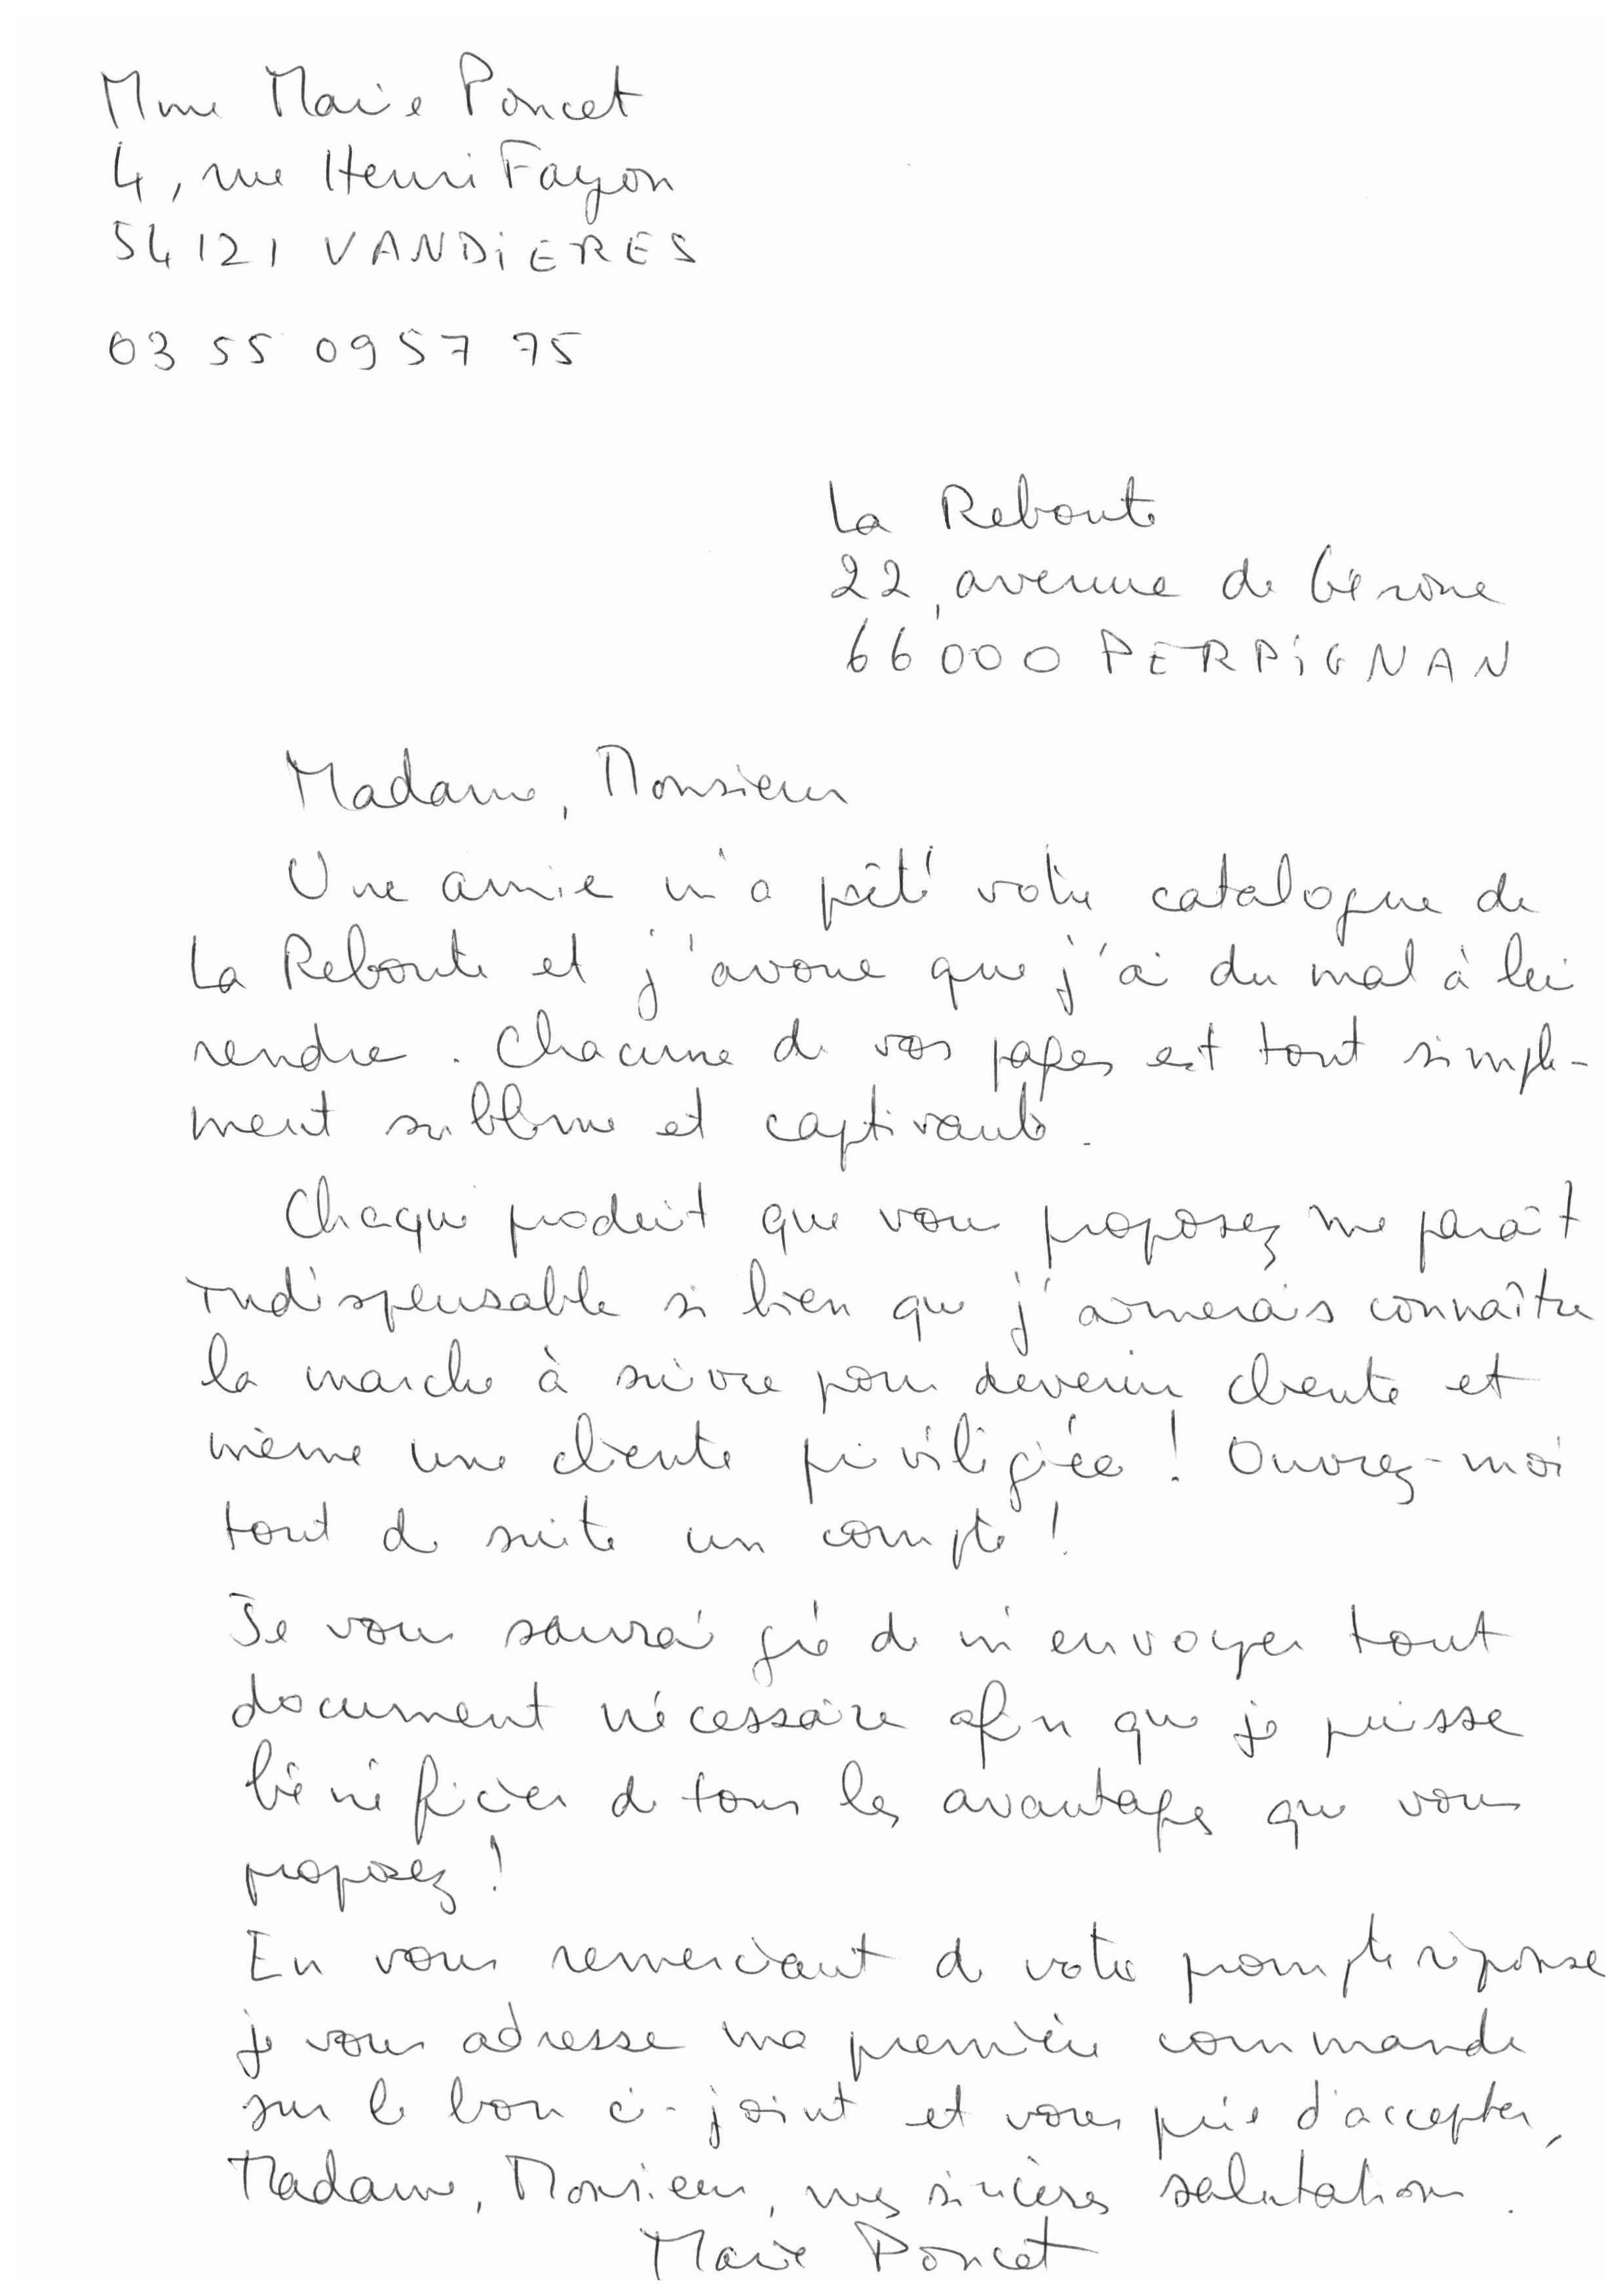 Mme Marie Poncet
4, rue Henri Fayon
54121 VANDIERES
03 55 09 57 75
La Reboute
22, avenue de Gérone
66000 PERPIGNAN
Madame, Monsieur
Une amie m'a prêté votre catalogue de
La Reboute et j'avoue que j'ai du mal à lui
rendre. Chacune de vos pages est tout simple-
ment sublime et captivante.
Chaque produit que vous proposez me paraît
indispensable si bien que j'aimerais connaître
la marche à suivre pour devenir cliente et
même une cliente priviligiée ! Ouvrez-moi
tout de suite un compte !
Je vous saurai gré de m'envoyer tout
document nécessaire afin que je puisse
bénéficier de tous les avantages que vous
proposez !
En vous remerciant de votre prompte réponse
je vous adresse ma première commande
sur le bon ci-joint et vous prie d'accepter,
Madame, Monsieur, mes sincères salutations.
Marie Poncet